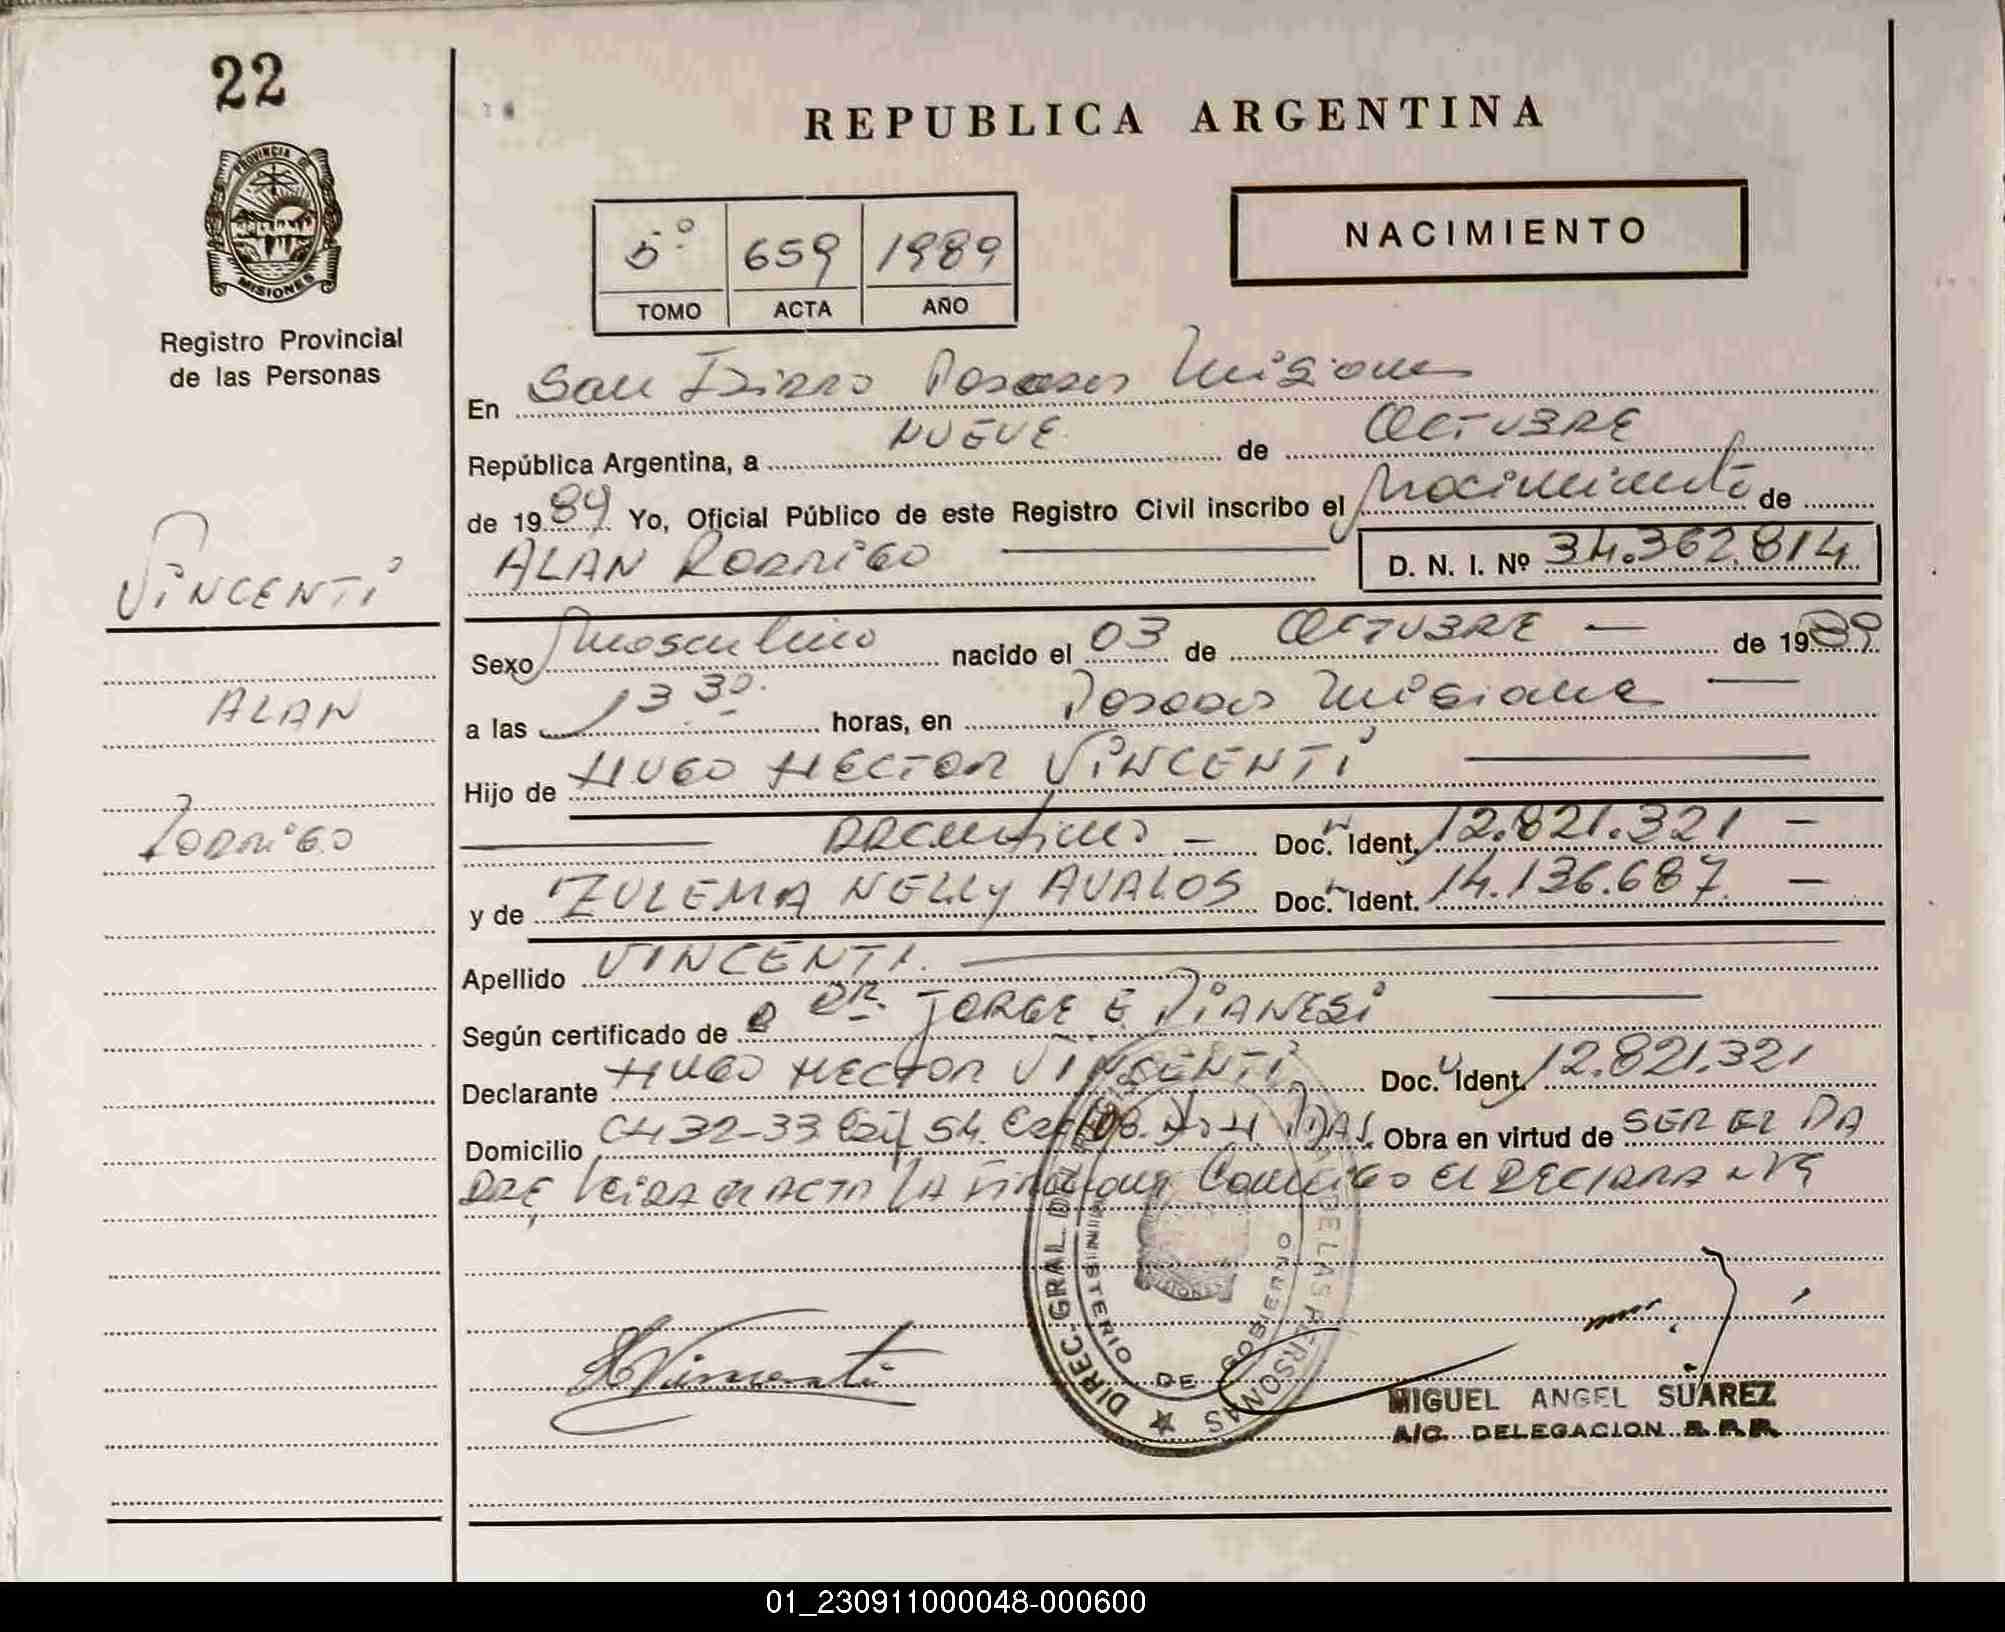 22
PROVINCIA DE
MISIONES
Registro Provincial
de las Personas
VINCENTI
ALAN
RODRIGO
REPUBLICA ARGENTINA
NACIMIENTO
5º 659 1989
TOMO ACTA AÑO
En San Isidro Posadas Misiones
República Argentina, a NUEVE de OCTUBRE
de 1989 Yo, Oficial Público de este Registro Civil inscribo el Nacimiento de
ALAN RODRIGO D. N. I. Nº 34.362.814
Sexo Masculino nacido el 03 de OCTUBRE — de 1989
a las 13 30. horas, en Posadas Misiones —
Hijo de HUGO HECTOR VINCENTI —
— ARGENTINO — Doc. Ident. 12.821.321 —
y de ZULEMA NELLY AVALOS Doc. Ident. 14.136.687 —
Apellido VINCENTI. —
Según certificado de DR. JORGE E. PIANESI —
Declarante HUGO HECTOR VINCENTI Doc. Ident. 12.821.321
Domicilio CH 32-33 Edif 54. Obra en virtud de SER EL PA
DRE, Leida el ACTA LA FIRMA Conmigo El DECLARANTE
H Vincenti
DIREC. GRAL. DEL REGISTRO DE LAS PERSONAS
MINISTERIO DE GOBIERNO
MIGUEL ANGEL SUAREZ
A/C. DELEGACION R.P.P.
01_230911000048-000600